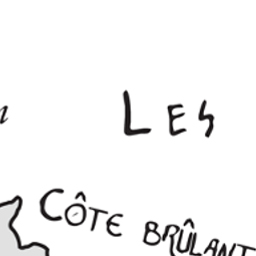 Les
Côte Brûlant